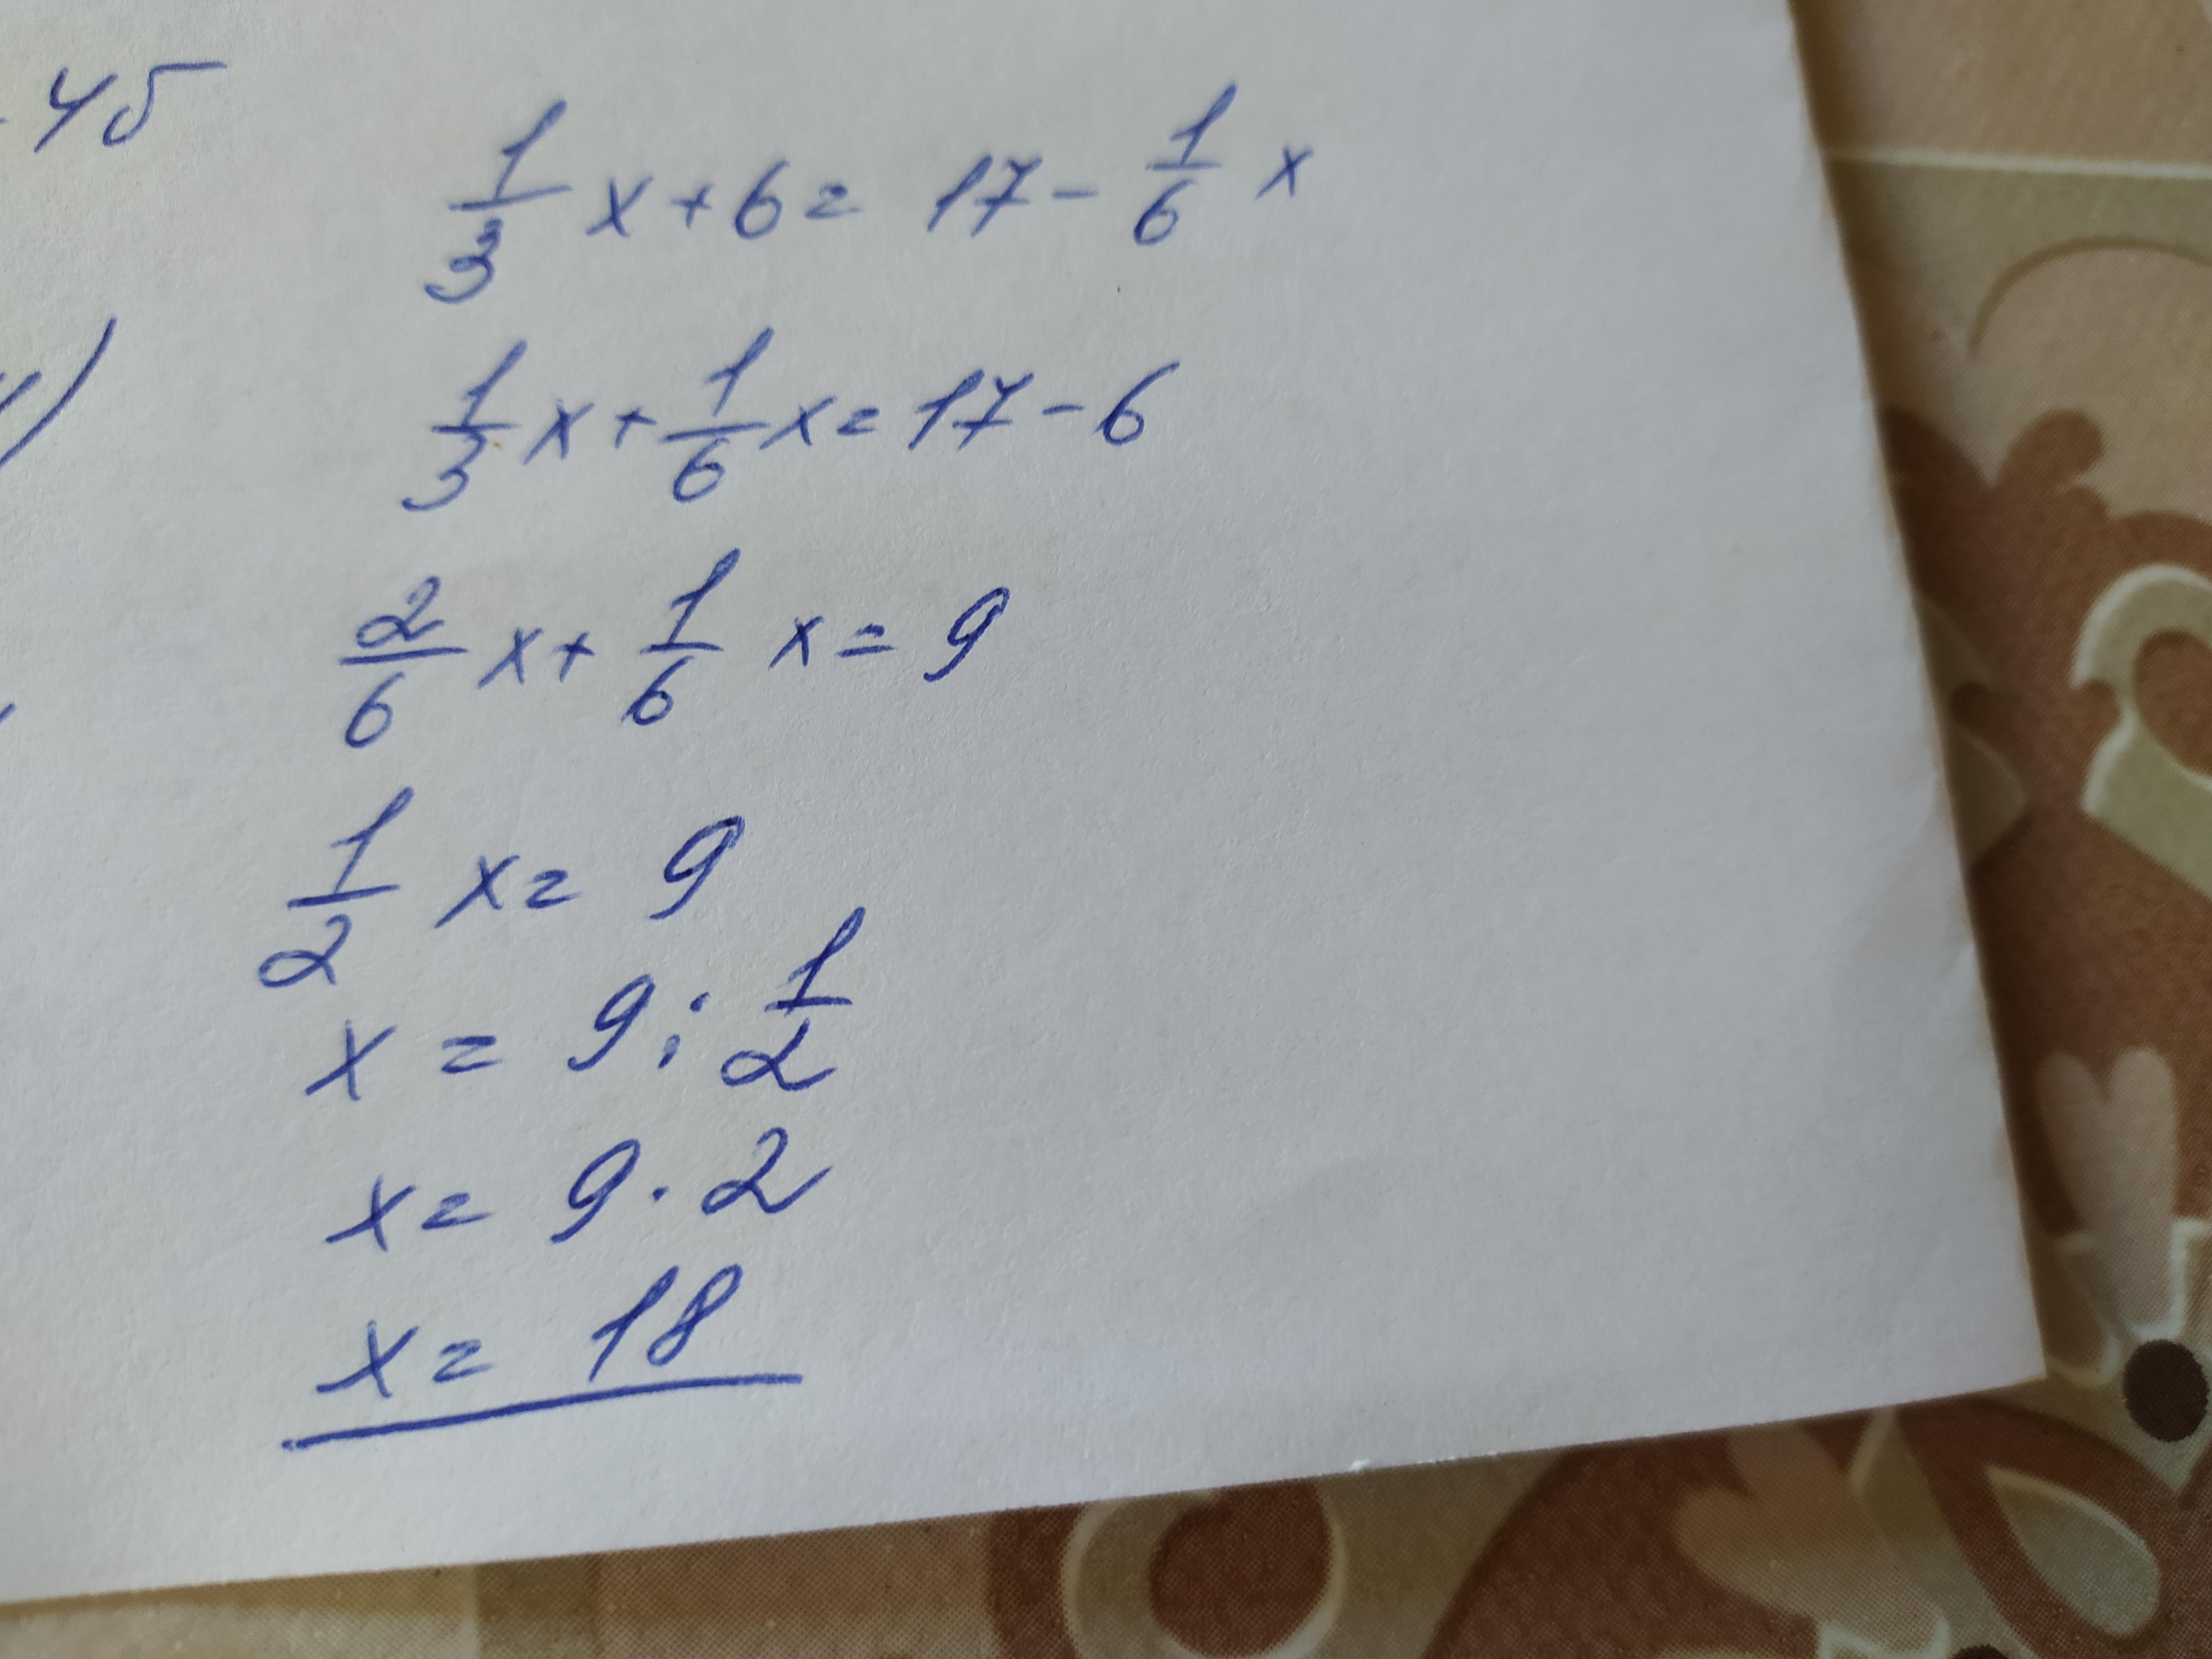 45
1/3 x + 6 = 17 - 1/6 x
1/3 x + 1/6 x = 17 - 6
2/6 x + 1/6 x = 9
1/2 x = 9
x = 9 : 1/2
x = 9 · 2
x = 18